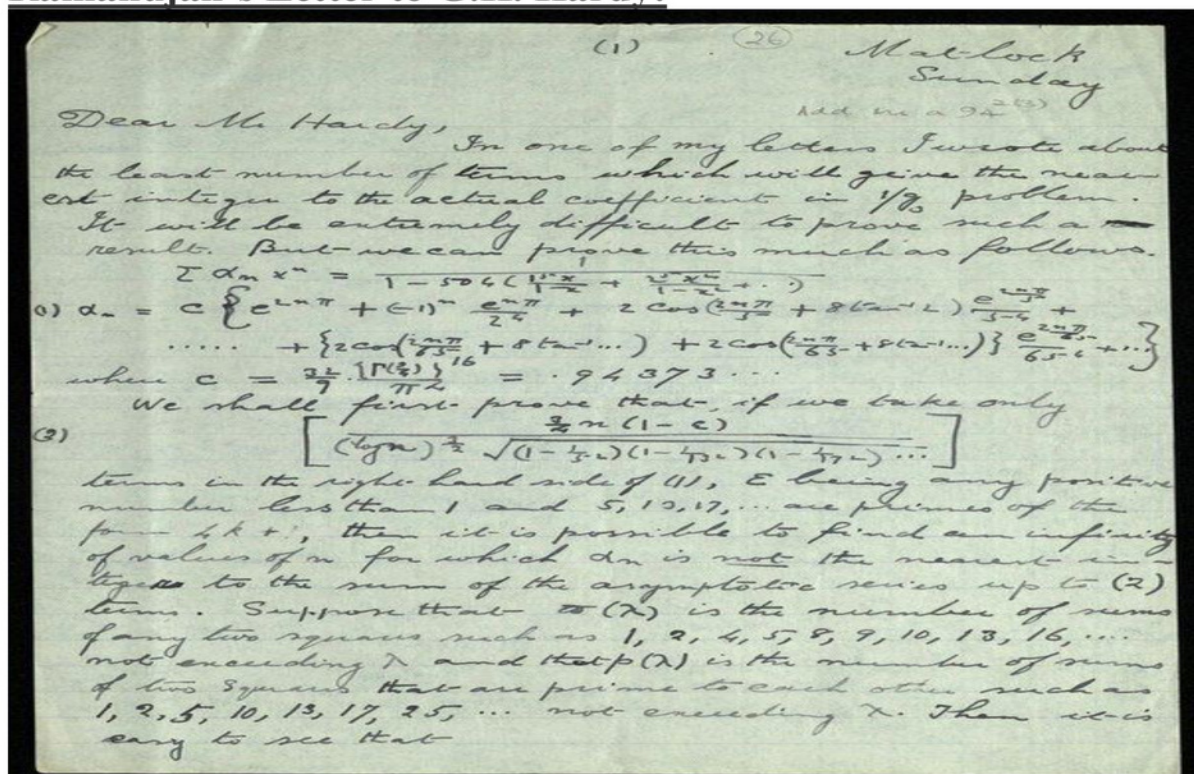 Ramanujan's Letter to G.H. Hardy:
(1) . (26) Matlock
Sunday
Add ms a 94
Dear Mr Hardy,
In one of my letters I wrote about
the least number of terms which will give the near-
est integer to the actual coefficient in 1/g₃ problem.
It will be extremely difficult to prove such a
result. But we can prove this much as follows.
Σ αₙ xⁿ = 1 / (1 − 504 (1⁵x/(1−x) + 2⁵x²/(1−x²) + ...))
(1) αₙ = c { e^(2nπ) + (−1)ⁿ e^(nπ)/2⁴ + 2 cos(
..... + {2 cos( + 8 tan⁻¹ ...) + 2 cos( + 8 tan⁻¹ ...)} + ...}
where c = = .94373...
We shall first prove that, if we take only
(2) [ n (1 − ε) / (log n) √(1 − )(1 − )(1 − ) ... ]
terms in the right hand side of (1), ε being any positive
number less than 1 and 5, 13, 17, ... are primes of the
form 4k + 1, then it is possible to find an infinity
of values of n for which αn is not the nearest in-
teger to the sum of the asymptotic series up to (2)
terms. Suppose that (λ) is the number of sums
of any two squares such as 1, 2, 4, 5, 8, 9, 10, 13, 16, ....
not exceeding λ and that p(λ) is the number of sums
of two squares that are prime to each other such as
1, 2, 5, 10, 13, 17, 25, ... not exceeding λ. Then it is
easy to see that